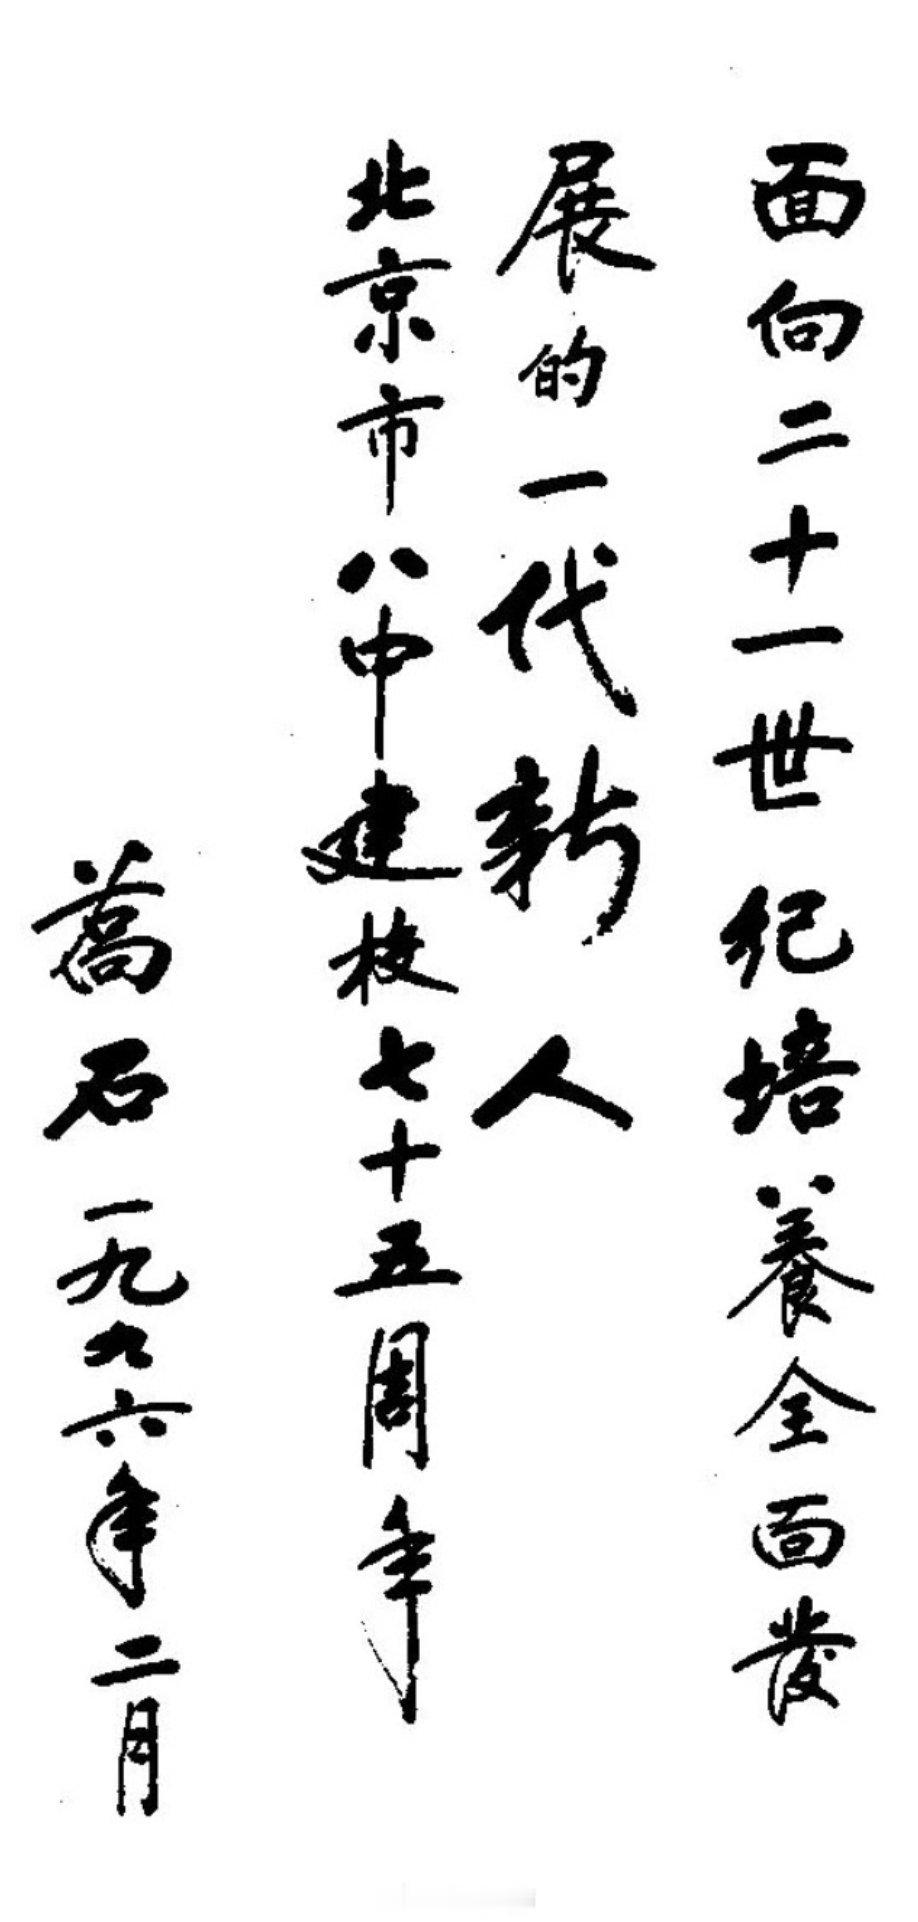 面向二十一世纪培養全面發
展的一代新人
北京市八中建校七十五周年
萬石一九九六年二月